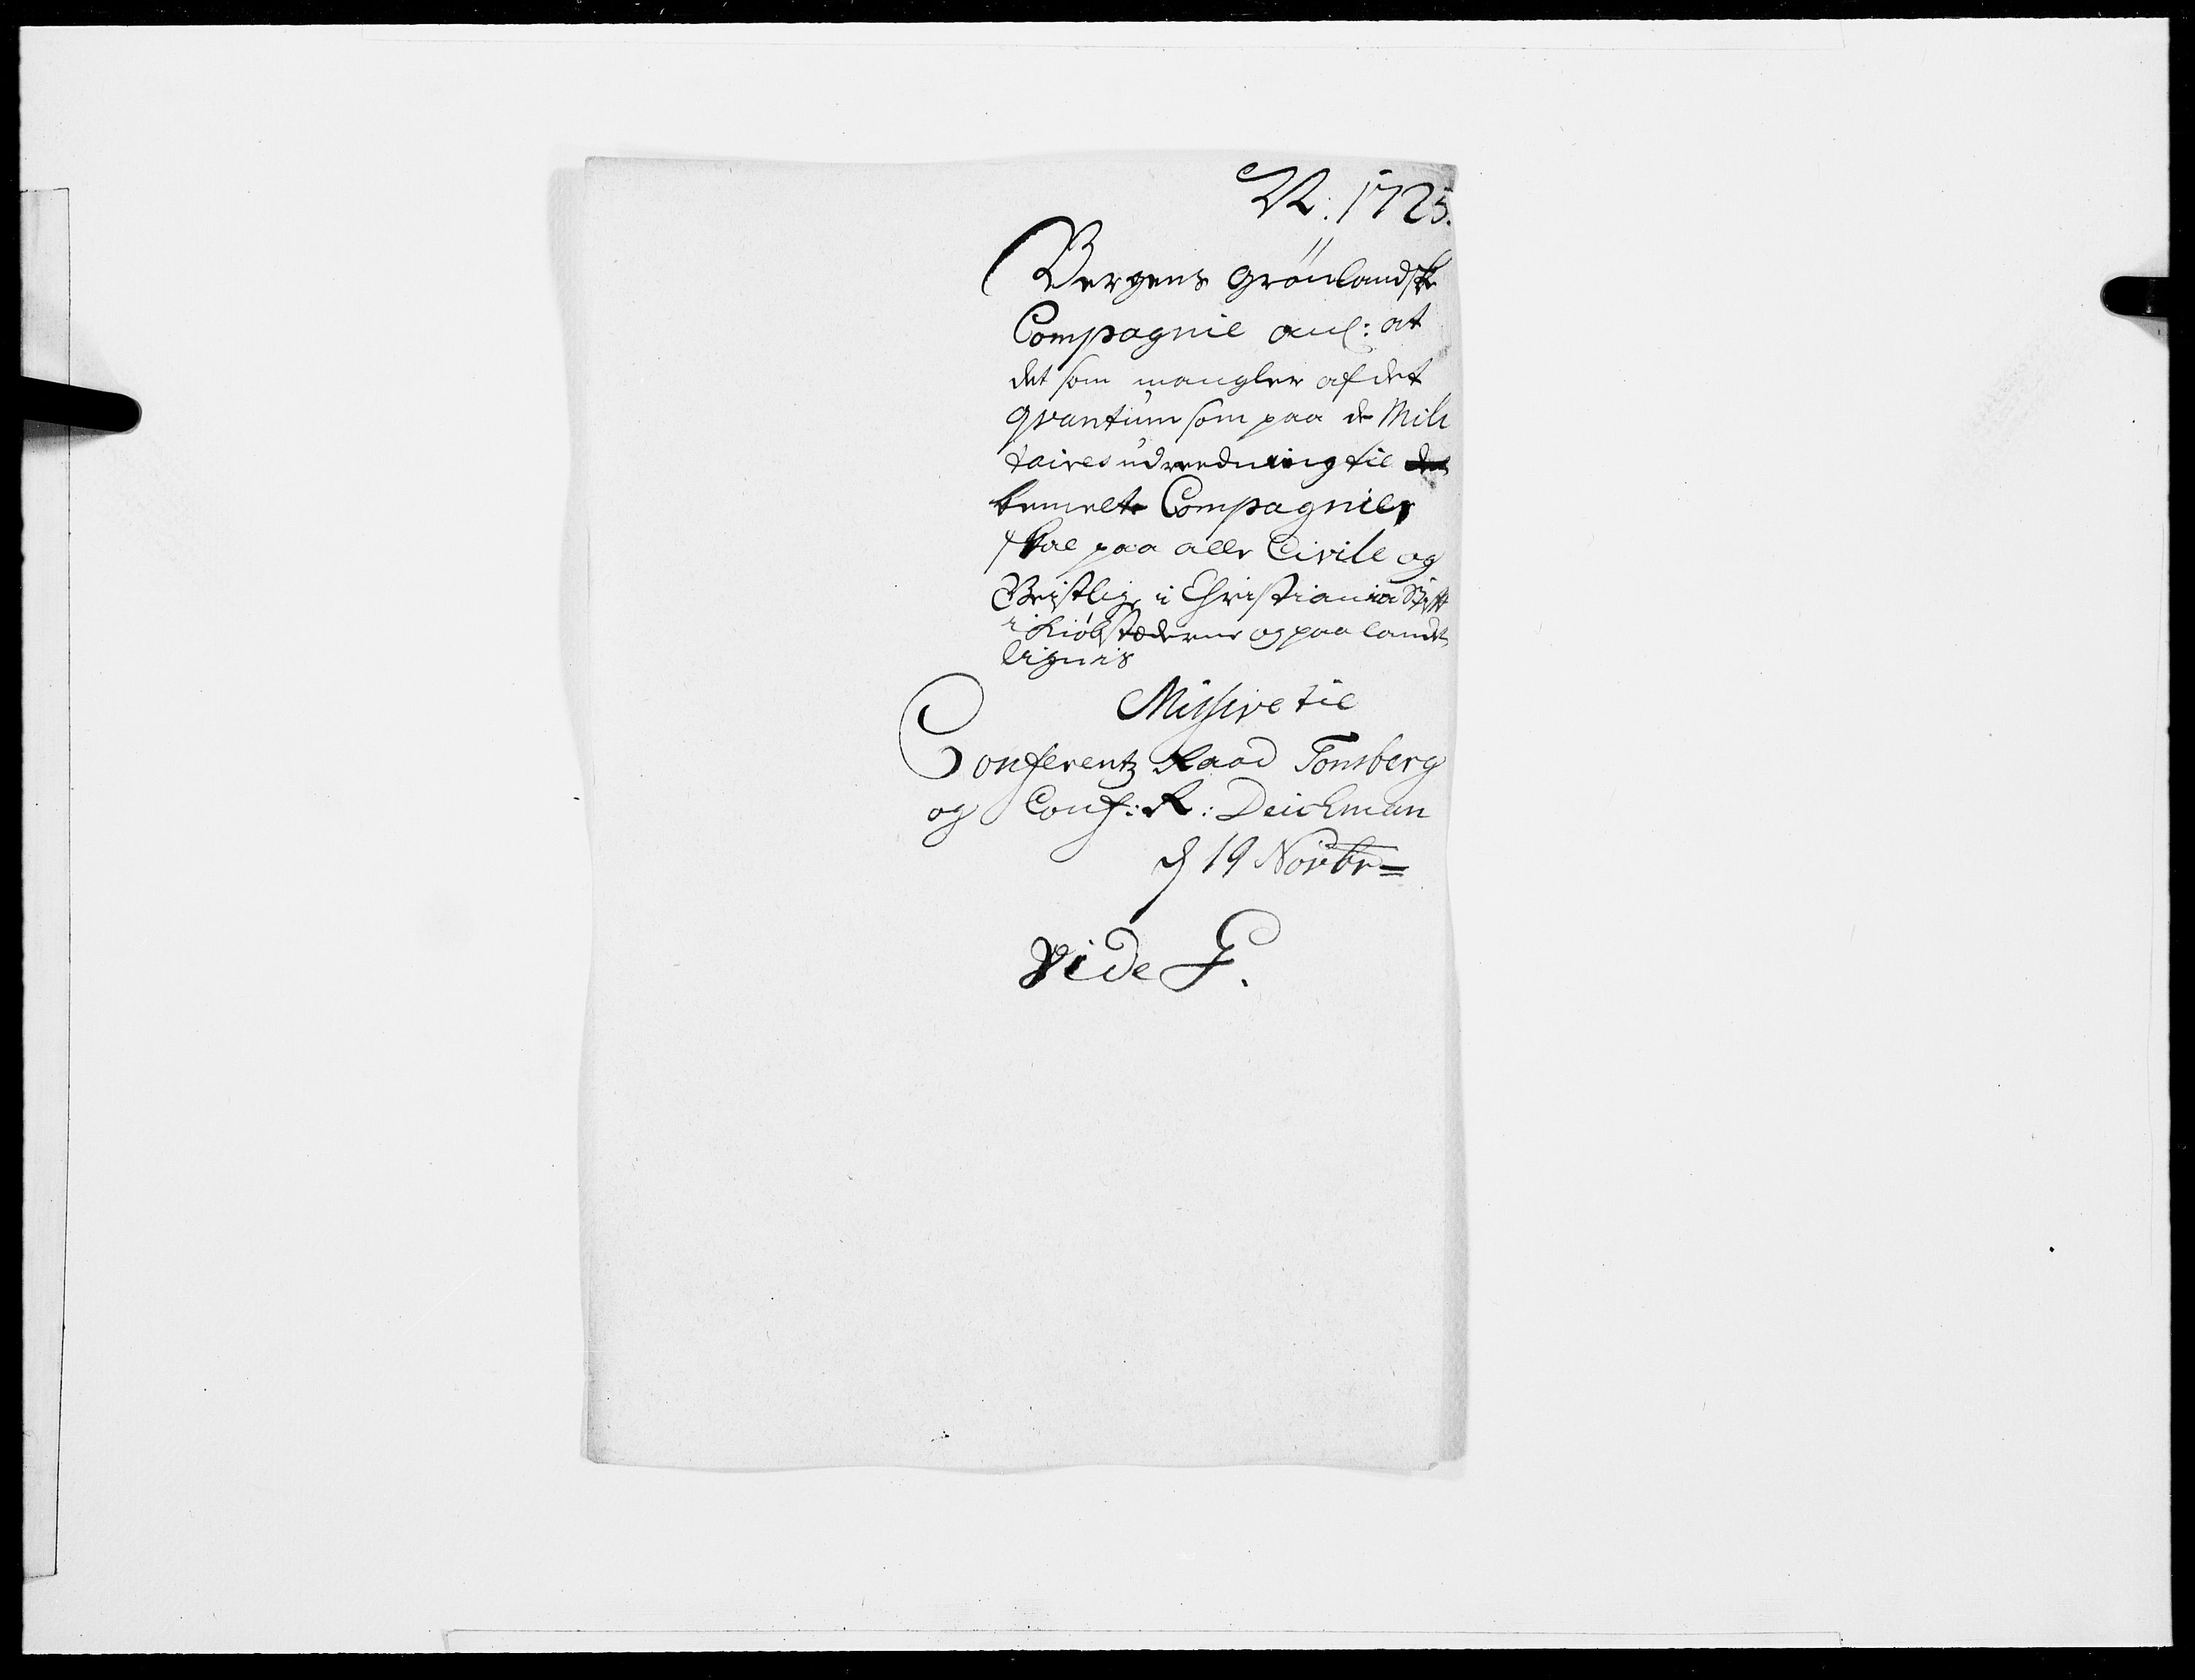 N. 1725.
Bergens Grönlandske
Compagnie anl: at
det som mangler af det
qvantum som paa de Mili
taires udreedning til det
bemelte Compagnie,
skal paa alle Civile og
Geistlige i Christiania Stift
i Kiöbstæderne og paa landet
lignis
Missive til
Conferentz Raad Tonsberg
og Conf: R: Deichman
d 19 Novbr=
Vide F.